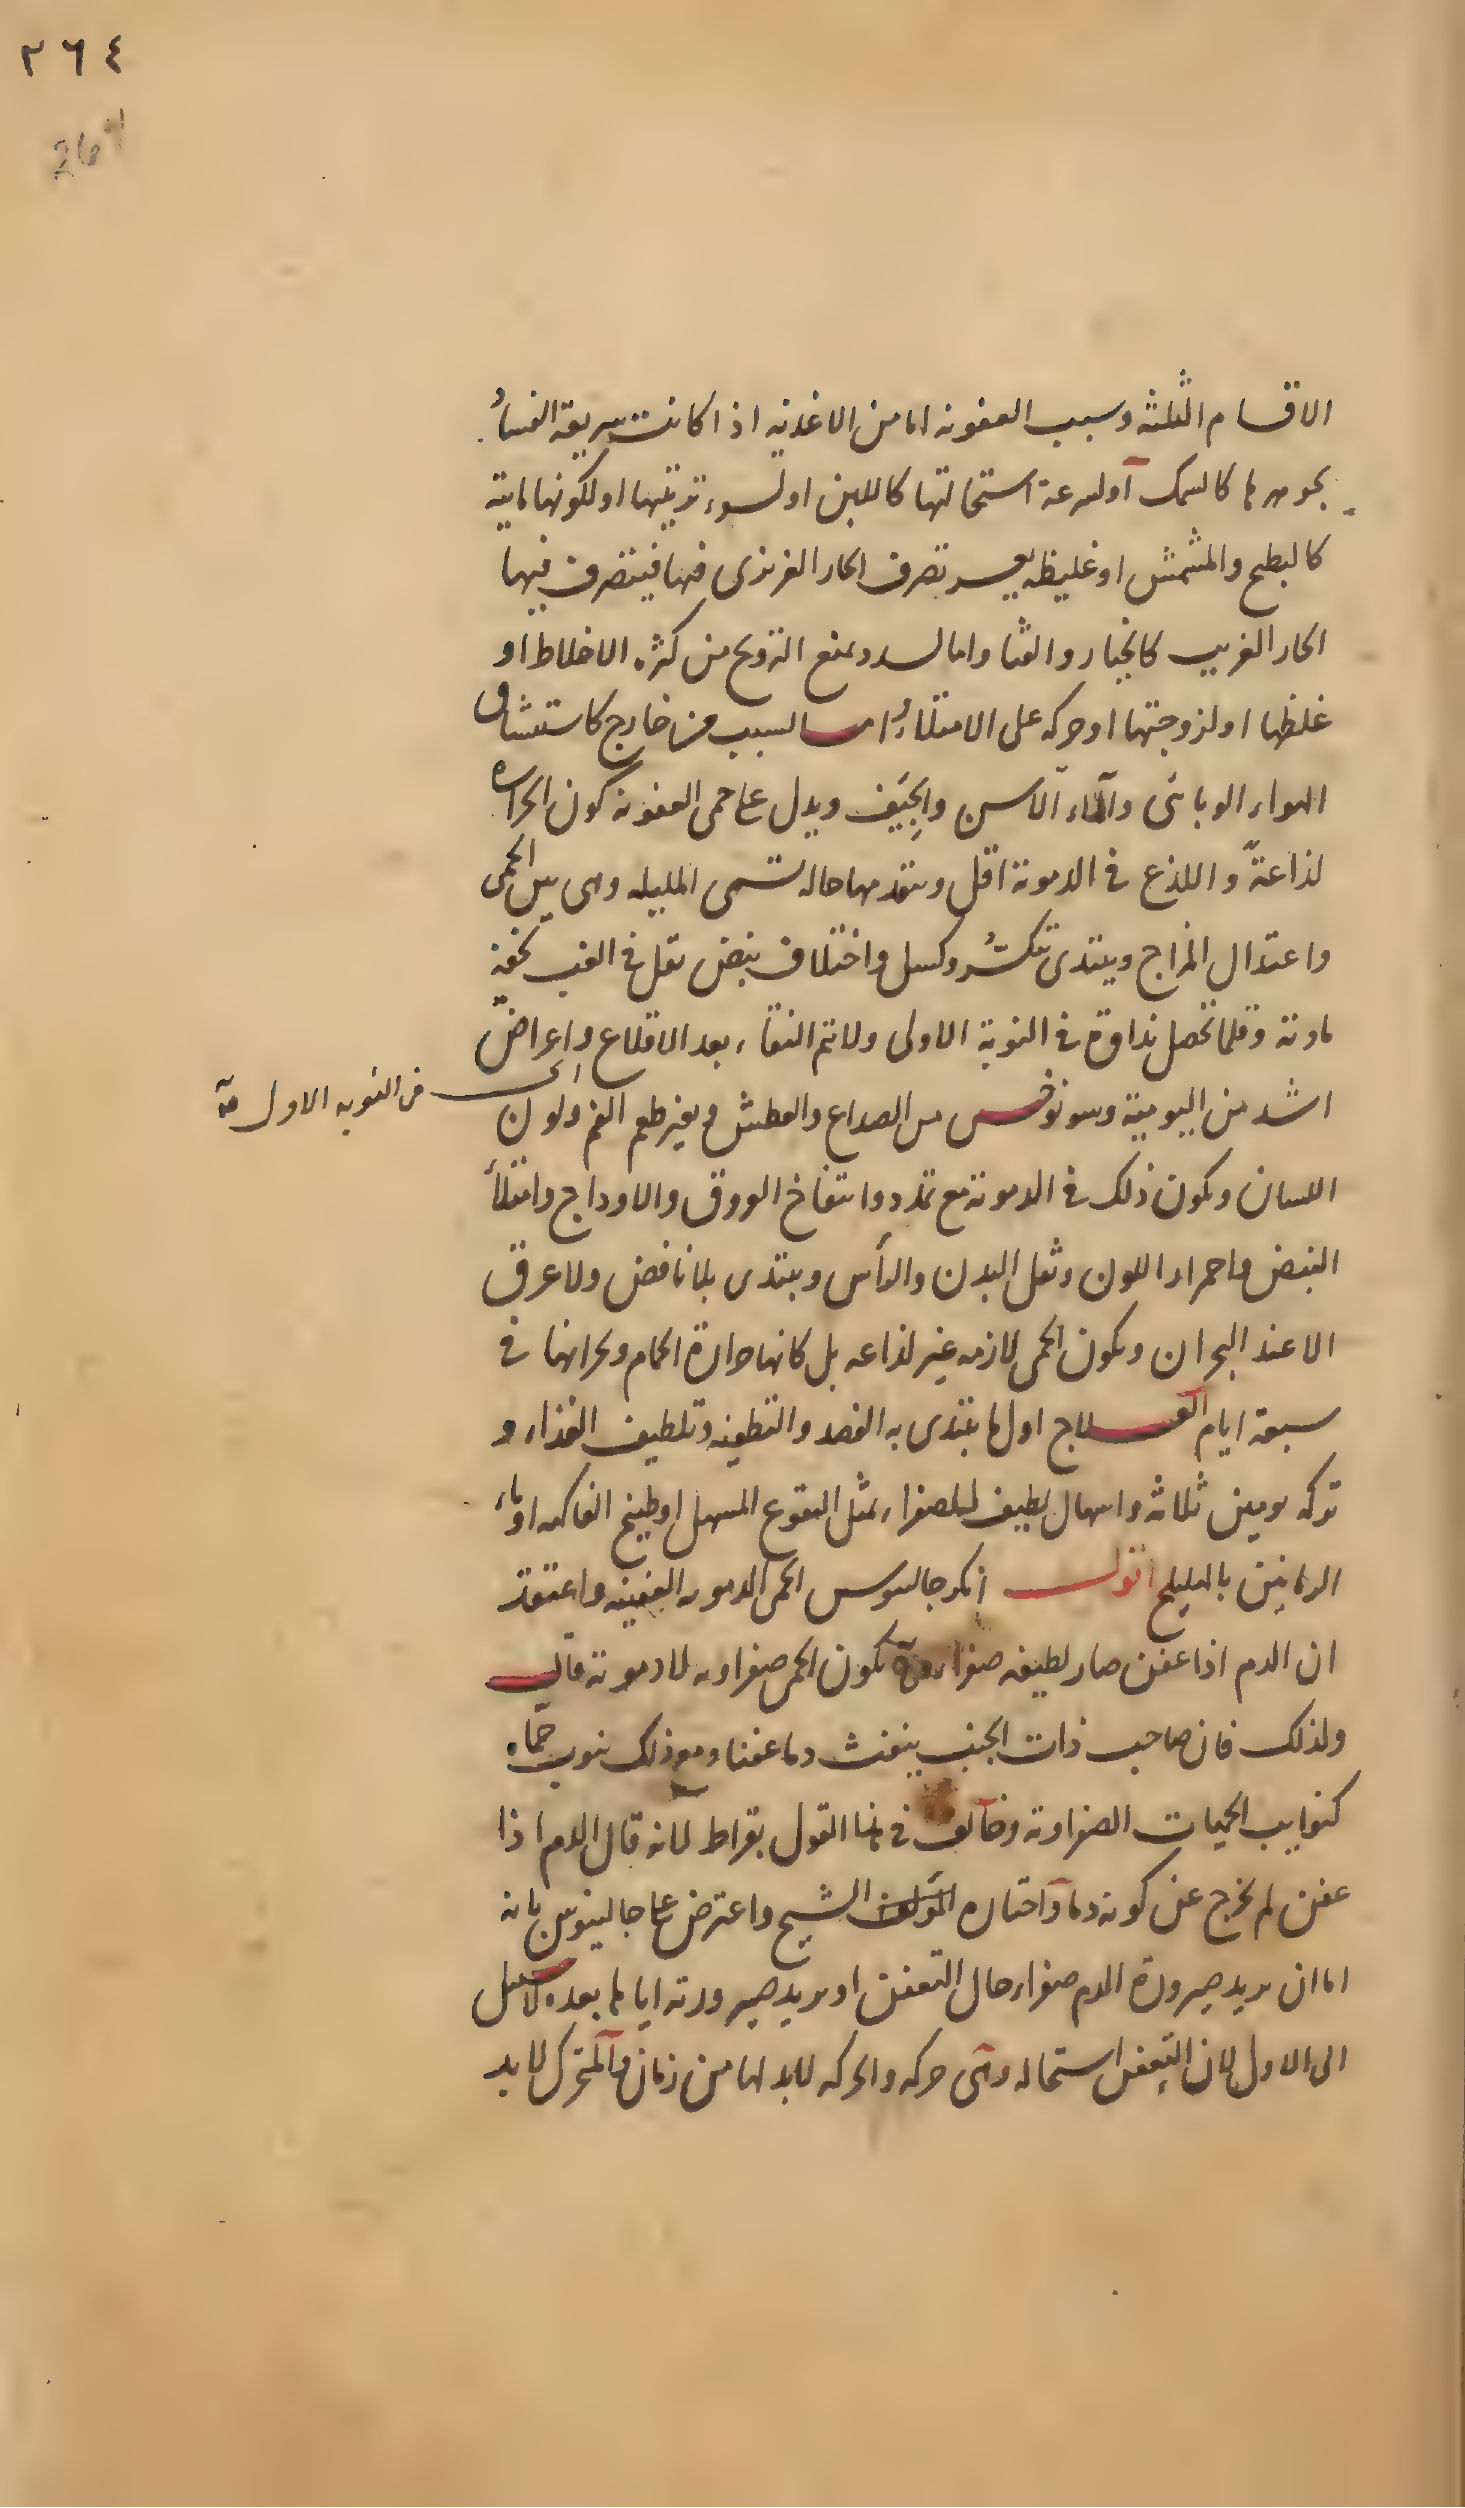 ٢٦٤
264
الاقسام الثلثة وسبب العفونه اما من الاغذيه اذا كانت سريعة الفساد
بجوهرها كالسمك اولسرعة استحالتها كاللبن اولسوء ترتيبها اولكونها مايية
كالبطيخ والمشمش اوغليظه يعسر تصرف الحار الغريزى فيها فيتصرف فيها
الحار الغريب كالخيار والقثا واما لسدد تمنع التروح من كثرة الاخلاط او
غلظها اولزوجتها اوحركه على الامتلاء واما لسبب من خارج كاستنشاق
الهواء الوبائى والماء الآسن والجيف ويدل على حمى العفونة كون الحرارة
لذاعةً واللذع فى الدموية اقل ويتقدمها حاله تسمى المليله وهى بين الحمى
واعتدال المزاج ويبتدى بتكسُّر وكسل واختلاف نبض يقل فى الغب لخفة
مادته وقلما تحصل نداوة فى النوبة الاولى ولاتم النقاء بعد الاقلاع واعراض
اشد من اليومية وسونوخس من الصداع والعطش وتغير طعم الفم ولون
اى من النوبه الاولى منه
اللسان ويكون ذلك فى الدموية مع تمدد وانتفاخ العروق والاوداج وامتلأ
النبض واحمرار اللون وثقل البدن والرأس ويبتدى بلا نافض ولا عرق
الا عند البحران ويكون الحمى لازمه غير لذاعه بل كانها حرارة الحمام وبحرانها فى
سبعة ايام العلاج اول ما يبتدى به الفصد والتطفيه وتلطيف الغذاء و
تركه يومين ثلاثة واسهال لطيف للصفراء بمثل النقوع المسهل اوطبيخ الفاكهه اوماء
الرمانين بالهليلج اقول انكر جالينوس الحمى الدمويه العفنيه واعتقد
ان الدم اذا عفن صار لطيفه صفراء تكون الحمى صفراويه لا دموية قال
ولذلك فان صاحب ذات الجنب ينفث دما عفنا ومع ذلك تنوب حماه
كنوايب الحميات الصفراوية وخالف فى هذا القول بقراط لانه قال الدم اذا
عفن لم يخرج عن كونه دما واختاره المؤلف الشيخ واعترض على جالينوس بانه
اما ان يريد صيرورة الدم صفراء حال التعفن اويريد صيرورته اياها بعده لاسبيل
الى الاول لان التعفن استحاله وهى حركه والحركه لابد لها من زمان والمتحرك لابد